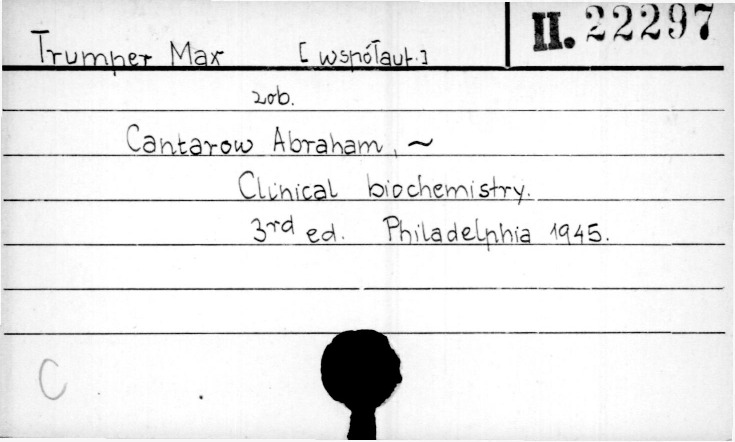 Trumper Max [współaut.] II. 22297
zob.
Cantarow Abraham, ~
Clinical biochemistry.
3rd ed. Philadelphia 1945.
C